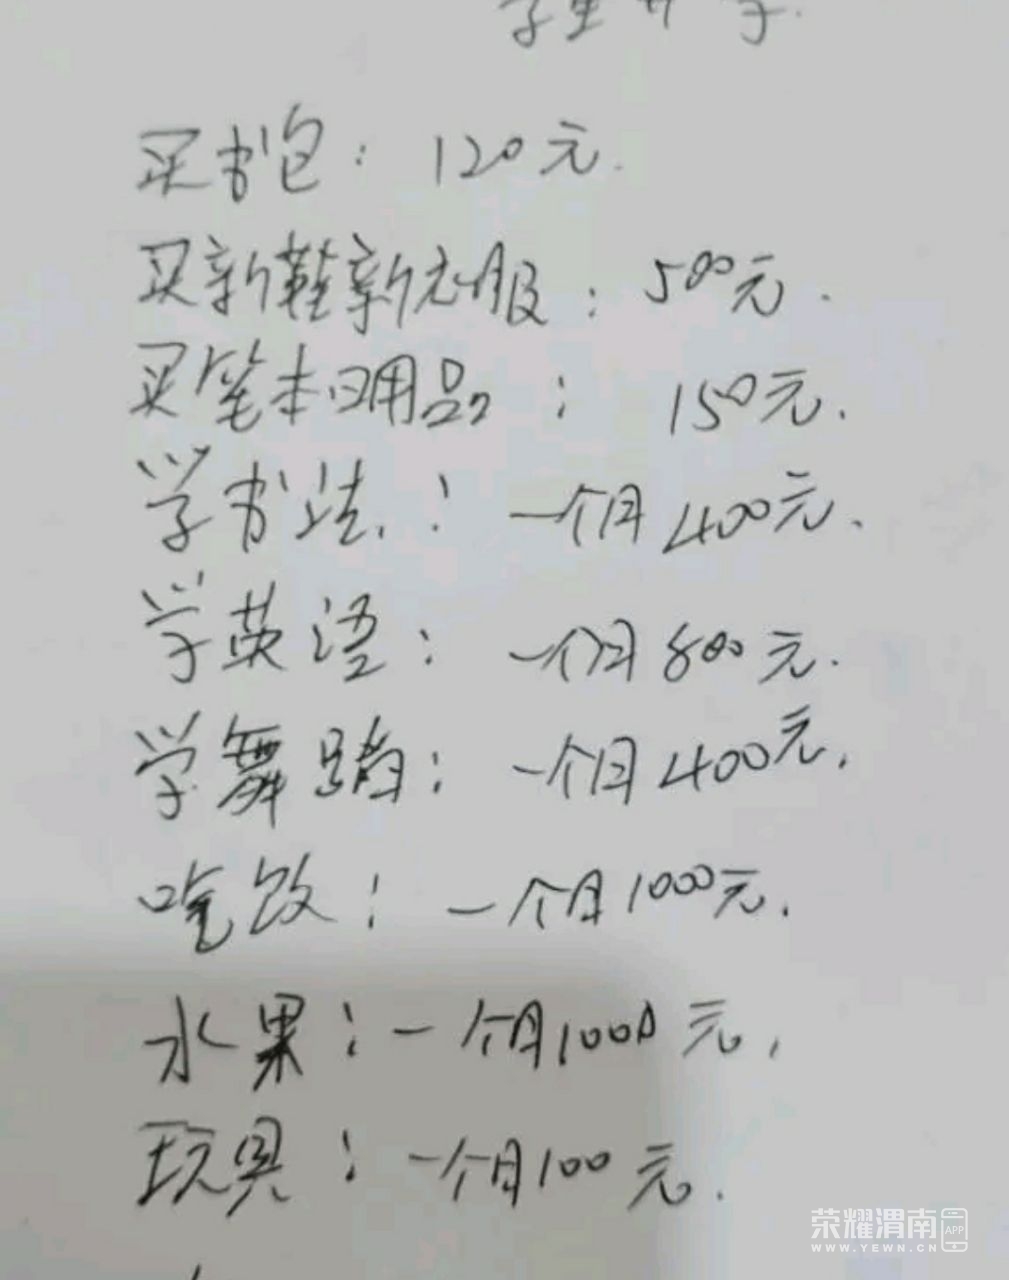 买书包：120元.
买新鞋新衣服：500元.
买笔本日用品：150元.
学书法：一个月400元.
学英语：一个月800元.
学舞蹈：一个月400元.
吃饭：一个月1000元.
水果：一个月1000元.
玩具：一个月100元.
荣耀渭南 APP
WWW.YEWN.CN